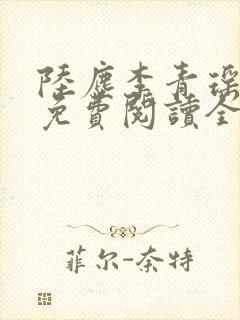 陸塵李青瑶
免費閱讀全
菲尔-奈特